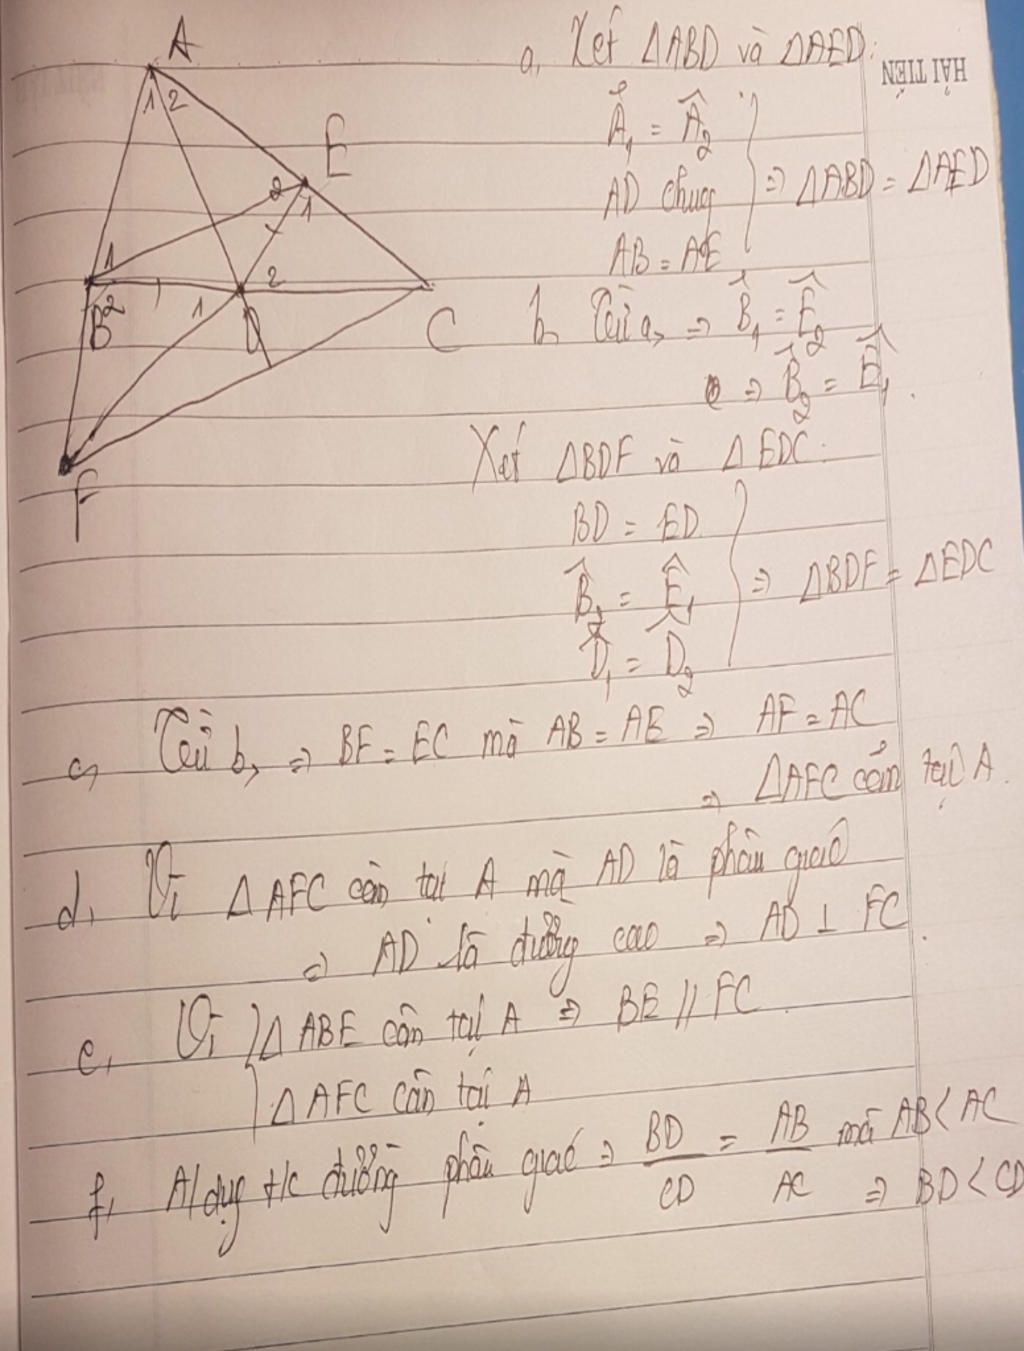 A
1 2
E
2
1
1
B 2
1
D
2
C
F
HẢI TIẾN
a, Xét ΔABD và ΔAED:
Â₁ = Â₂
AD chung
AB = AE
} ⇒ ΔABD = ΔAED
b, Từ a, ⇒ B̂₁ = Ê₂
⇒ B̂₂ = Ê₁.
Xét ΔBDF và ΔEDC:
BD = ED
B̂₂ = Ê₁
D̂₁ = D̂₂
} ⇒ ΔBDF = ΔEDC
c, Từ b, ⇒ BF = EC mà AB = AE ⇒ AF = AC
⇒ ΔAFC cân tại A.
d, Vì ΔAFC cân tại A mà AD là phân giác
⇒ AD là đường cao ⇒ AD ⊥ FC.
e, Vì { ΔABE cân tại A ⇒ BE // FC.
ΔAFC cân tại A
f, A/dụng t/c đường phân giác ⇒ BD/CD = AB/AC mà AB < AC
⇒ BD < CD